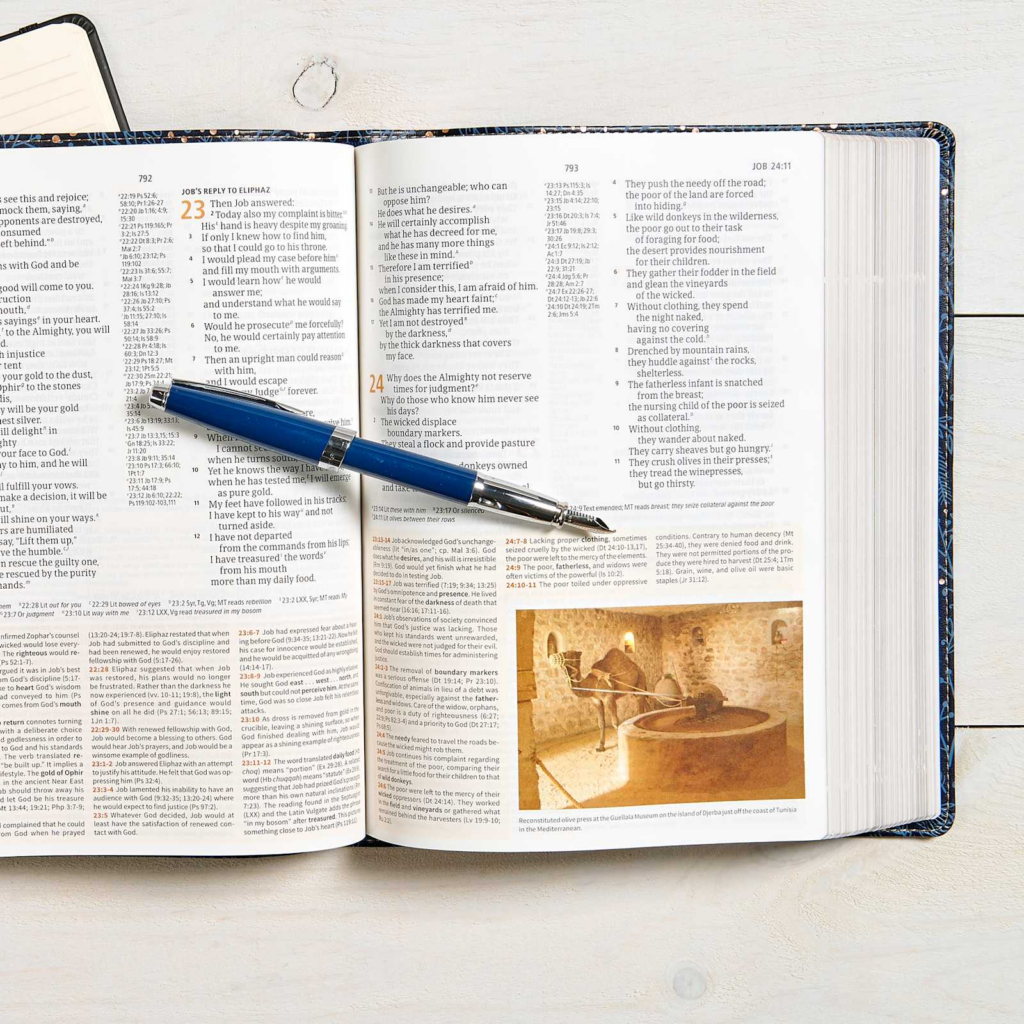 792
see this and rejoice;
mock them, saying,
pponents are destroyed,
onsumed
eft behind."
ns with God and be
good will come to you.
ruction
mouth,
sayings in your heart.
to the Almighty, you will
d.
h injustice
r tent
your gold to the dust,
Ophir to the stones
y will be your gold
nest silver.
ill delight in
ghty
your face to God.
y to him, and he will
fulfill your vows.
make a decision, it will be
ut,
will shine on your ways.
ers are humiliated
say, "Lift them up,"
ve the humble.
en rescue the guilty one,
e rescued by the purity
ands."
JOB'S REPLY TO ELIPHAZ
23 Then Job answered:
2 Today also my complaint is bitter.
His hand is heavy despite my groaning
3 If only I knew how to find him,
so that I could go to his throne.
4 I would plead my case before him
and fill my mouth with arguments.
5 I would learn how he would
answer me;
and understand what he would say
to me.
6 Would he prosecute me forcefully?
No, he would certainly pay attention
to me.
7 Then an upright man could reason
with him,
and I would escape
my Judge forever.
9 When
I cannot see
when he turns south,
10 Yet he knows the way I have
when he has tested me, I will emerge
as pure gold.
11 My feet have followed in his tracks;
I have kept to his way and not
turned aside.
12 I have not departed
from the commands from his lips;
I have treasured the words
from his mouth
more than my daily food.
22:28 Lit out for you 22:29 Lit bowed of eyes 23:2 Syr, Tg, Vg; MT reads rebellion 23:2 LXX, Syr; MT reads My
23:7 Or judgment 23:10 Lit way with me 23:12 LXX, Vg read treasured in my bosom
nfirmed Zophar's counsel
wicked would lose every-
The righteous would re-
(Ps 52:1-7).
argued it was in Job's best
om God's discipline (5:17-
e to heart God's wisdom
ad conveyed to him (Ps
comes from God's mouth
o return connotes turning
with a deliberate choice
d godlessness in order to
to God and his standards
The verb translated re-
"be built up." It implies a
festyle. The gold of Ophir
in the ancient Near East
ob should throw away his
d let God be his treasure
Mt 13:44; 19:21; Php 3:7-9;
complained that he could
om God when he prayed
(13:20-24; 19:7-8). Eliphaz restated that when
Job had submitted to God's discipline and
had been renewed, he would enjoy restored
fellowship with God (5:17-26).
22:28 Eliphaz suggested that when Job
was restored, his plans would no longer
be frustrated. Rather than the darkness he
now experienced (vv. 10-11; 19:8), the light
of God's presence and guidance would
shine on all he did (Ps 27:1; 56:13; 89:15;
1Jn 1:7).
22:29-30 With renewed fellowship with God,
Job would become a blessing to others. God
would hear Job's prayers, and Job would be a
winsome example of godliness.
23:1-2 Job answered Eliphaz with an attempt
to justify his attitude. He felt that God was op-
pressing him (Ps 32:4).
23:3-4 Job lamented his inability to have an
audience with God (9:32-35; 13:20-24) where
he would expect to find justice (Ps 97:2).
23:5 Whatever God decided, Job would at
least have the satisfaction of renewed con-
tact with God.
23:6-7 Job had expressed fear about a hear-
ing before God (9:34-35; 13:21-22). Now he felt
his case for innocence would be established,
and he would be acquitted of any wrongdoing
(14:14-17).
23:8-9 Job experienced God as highly elusive.
He sought God east . . . west . . . north, and
south but could not perceive him. At the same
time, God was so close Job felt his relentless
attack.
23:10 As dross is removed from gold in a
crucible, leaving a shining surface, so when
God finished dealing with him, Job would
appear as a shining example of righteousness
(Pr 17:3).
23:11-12 The word translated daily food (Hb
choq) means "portion" (Ex 29:28). A related
word (Hb chuqqah) means "statute" (Ex 29:9),
suggesting that Job had prized God's precepts
more than his own natural inclinations (Rm
7:23). The reading found in the Septuagint
(LXX) and the Latin Vulgate adds the phrase
"in my bosom" after treasured. This pictures
something close to Job's heart (Ps 119:11).
793
JOB 24:11
13 But he is unchangeable; who can
oppose him?
He does what he desires.
14 He will certainly accomplish
what he has decreed for me,
and he has many more things
like these in mind.
15 Therefore I am terrified
in his presence;
when I consider this, I am afraid of him.
16 God has made my heart faint;
the Almighty has terrified me.
17 Yet I am not destroyed
by the darkness,
by the thick darkness that covers
my face.
24 Why does the Almighty not reserve
times for judgment?
Why do those who know him never see
his days?
2 The wicked displace
boundary markers.
They steal a flock and provide pasture
donkeys owned
and take
4 They push the needy off the road;
the poor of the land are forced
into hiding.
5 Like wild donkeys in the wilderness,
the poor go out to their task
of foraging for food;
the desert provides nourishment
for their children.
6 They gather their fodder in the field
and glean the vineyards
of the wicked.
7 Without clothing, they spend
the night naked,
having no covering
against the cold.
8 Drenched by mountain rains,
they huddle against the rocks,
shelterless.
9 The fatherless infant is snatched
from the breast;
the nursing child of the poor is seized
as collateral.
10 Without clothing,
they wander about naked.
They carry sheaves but go hungry.
11 They crush olives in their presses;
they tread the winepresses,
but go thirsty.
23:14 Lit these with him 23:17 Or silenced
24:9 Text emended; MT reads breast; they seize collateral against the poor
24:11 Lit olives between their rows
23:13-14 Job acknowledged God's unchange-
ableness (lit "in/as one"; cp. Mal 3:6). God
does what he desires, and his will is irresistible
(Rm 9:19). God would yet finish what he had
decided to do in testing Job.
23:15-17 Job was terrified (7:19; 9:34; 13:25)
by God's omnipotence and presence. He lived
in constant fear of the darkness of death that
seemed near (16:16; 17:11-16).
24:1 Job's observations of society convinced
him that God's justice was lacking. Those
who kept his standards went unrewarded,
and the wicked were not judged for their evil.
God should establish times for administering
justice.
24:2-3 The removal of boundary markers
was a serious offense (Dt 19:14; Pr 23:10).
Confiscation of animals in lieu of a debt was
unforgivable, especially against the father-
less and widows. Care of the widow, orphans,
and poor is a duty of righteousness (6:27;
22:9; Ps 82:3-4) and a priority to God (Dt 27:17;
Ps 68:5).
24:4 The needy feared to travel the roads be-
cause the wicked might rob them.
24:5 Job continues his complaint regarding
the treatment of the poor, comparing their
search for a little food for their children to that
of wild donkeys.
24:6 The poor were left to the mercy of their
wicked oppressors (Dt 24:14). They worked
in the field and vineyards or gathered what
remained behind the harvesters (Lv 19:9-10;
Ru 2:2).
24:7-8 Lacking proper clothing, sometimes
seized cruelly by the wicked (Dt 24:10-13,17),
the poor were left to the mercy of the elements.
24:9 The poor, fatherless, and widows were
often victims of the powerful (Is 10:2).
24:10-11 The poor toiled under oppressive
conditions. Contrary to human decency (Mt
25:34-40), they were denied food and drink.
They were not permitted portions of the pro-
duce they were hired to harvest (Dt 25:4; 1Tm
5:18). Grain, wine, and olive oil were basic
staples (Jr 31:12).
Reconstituted olive press at the Guellala Museum on the island of Djerba just off the coast of Tunisia
in the Mediterranean.